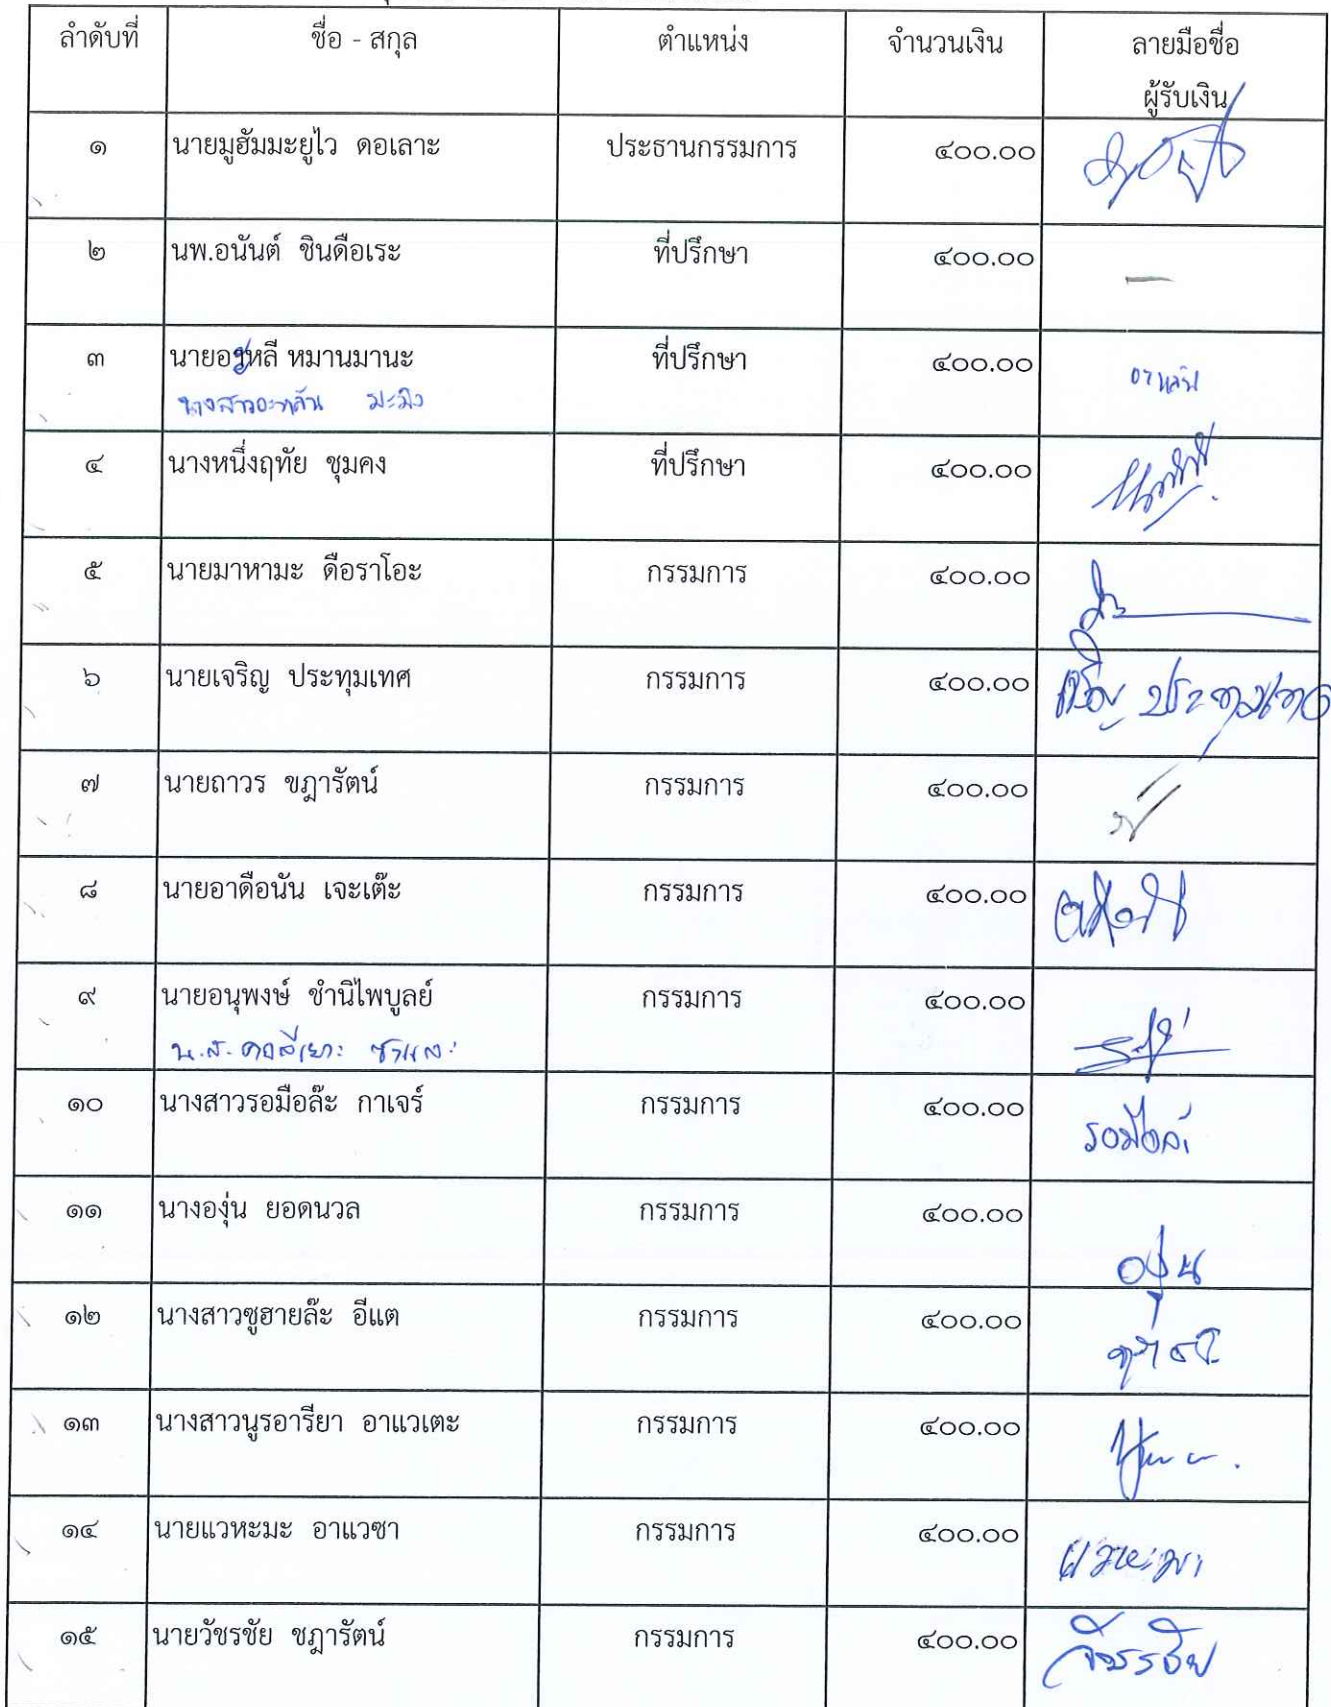 ลำดับที่ ชื่อ - สกุล ตำแหน่ง จำนวนเงิน ลายมือชื่อ
ผู้รับเงิน
๑ นายมูฮัมมะยูไว ดอเลาะ ประธานกรรมการ ๔๐๐.๐๐
๒ นพ.อนันต์ ชินดือเระ ที่ปรึกษา ๔๐๐.๐๐ —
๓ หมานมานะ ที่ปรึกษา ๔๐๐.๐๐
๔ นางหนึ่งฤทัย ชุมคง ที่ปรึกษา ๔๐๐.๐๐
๕ นายมาหามะ ดือราโอะ กรรมการ ๔๐๐.๐๐
๖ นายเจริญ ประทุมเทศ กรรมการ ๔๐๐.๐๐ เจริญ ประทุมเทศ
๗ นายถาวร ขฎารัตน์ กรรมการ ๔๐๐.๐๐
๘ นายอาดือนัน เจะเต๊ะ กรรมการ ๔๐๐.๐๐
๙ นายอนุพงษ์ ชำนิไพบูลย์ กรรมการ ๔๐๐.๐๐
น.ส.
๑๐ นางสาวรอมือล๊ะ กาเจร์ กรรมการ ๔๐๐.๐๐
๑๑ นางองุ่น ยอดนวล กรรมการ ๔๐๐.๐๐ องุ่น
๑๒ นางสาวซูฮายล๊ะ อีแต กรรมการ ๔๐๐.๐๐
๑๓ นางสาวนูรอารียา อาแวเตะ กรรมการ ๔๐๐.๐๐
๑๔ นายแวหะมะ อาแวซา กรรมการ ๔๐๐.๐๐ แวหะมะ
๑๕ นายวัชรชัย ชฎารัตน์ กรรมการ ๔๐๐.๐๐ วัชรชัย